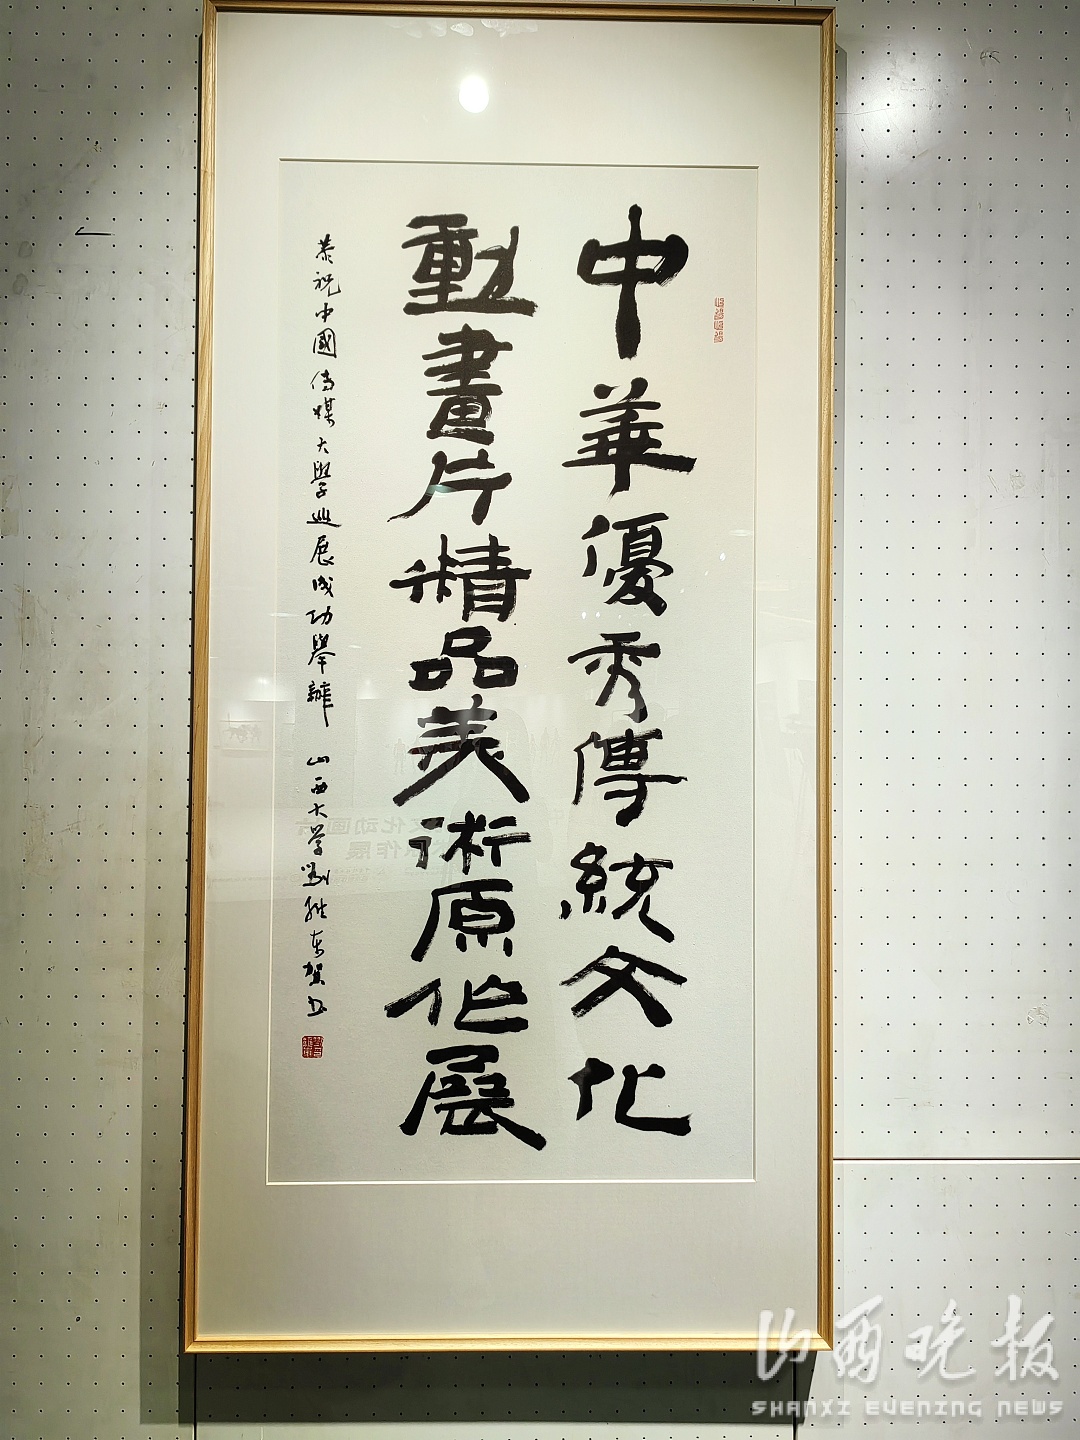 中華優秀傳統文化
動畫片精品美術原作展
恭祝中國傳媒大學巡展成功舉辦 山西大学劉維東賀書
山西晚报
SHANXI EVENING NEWS